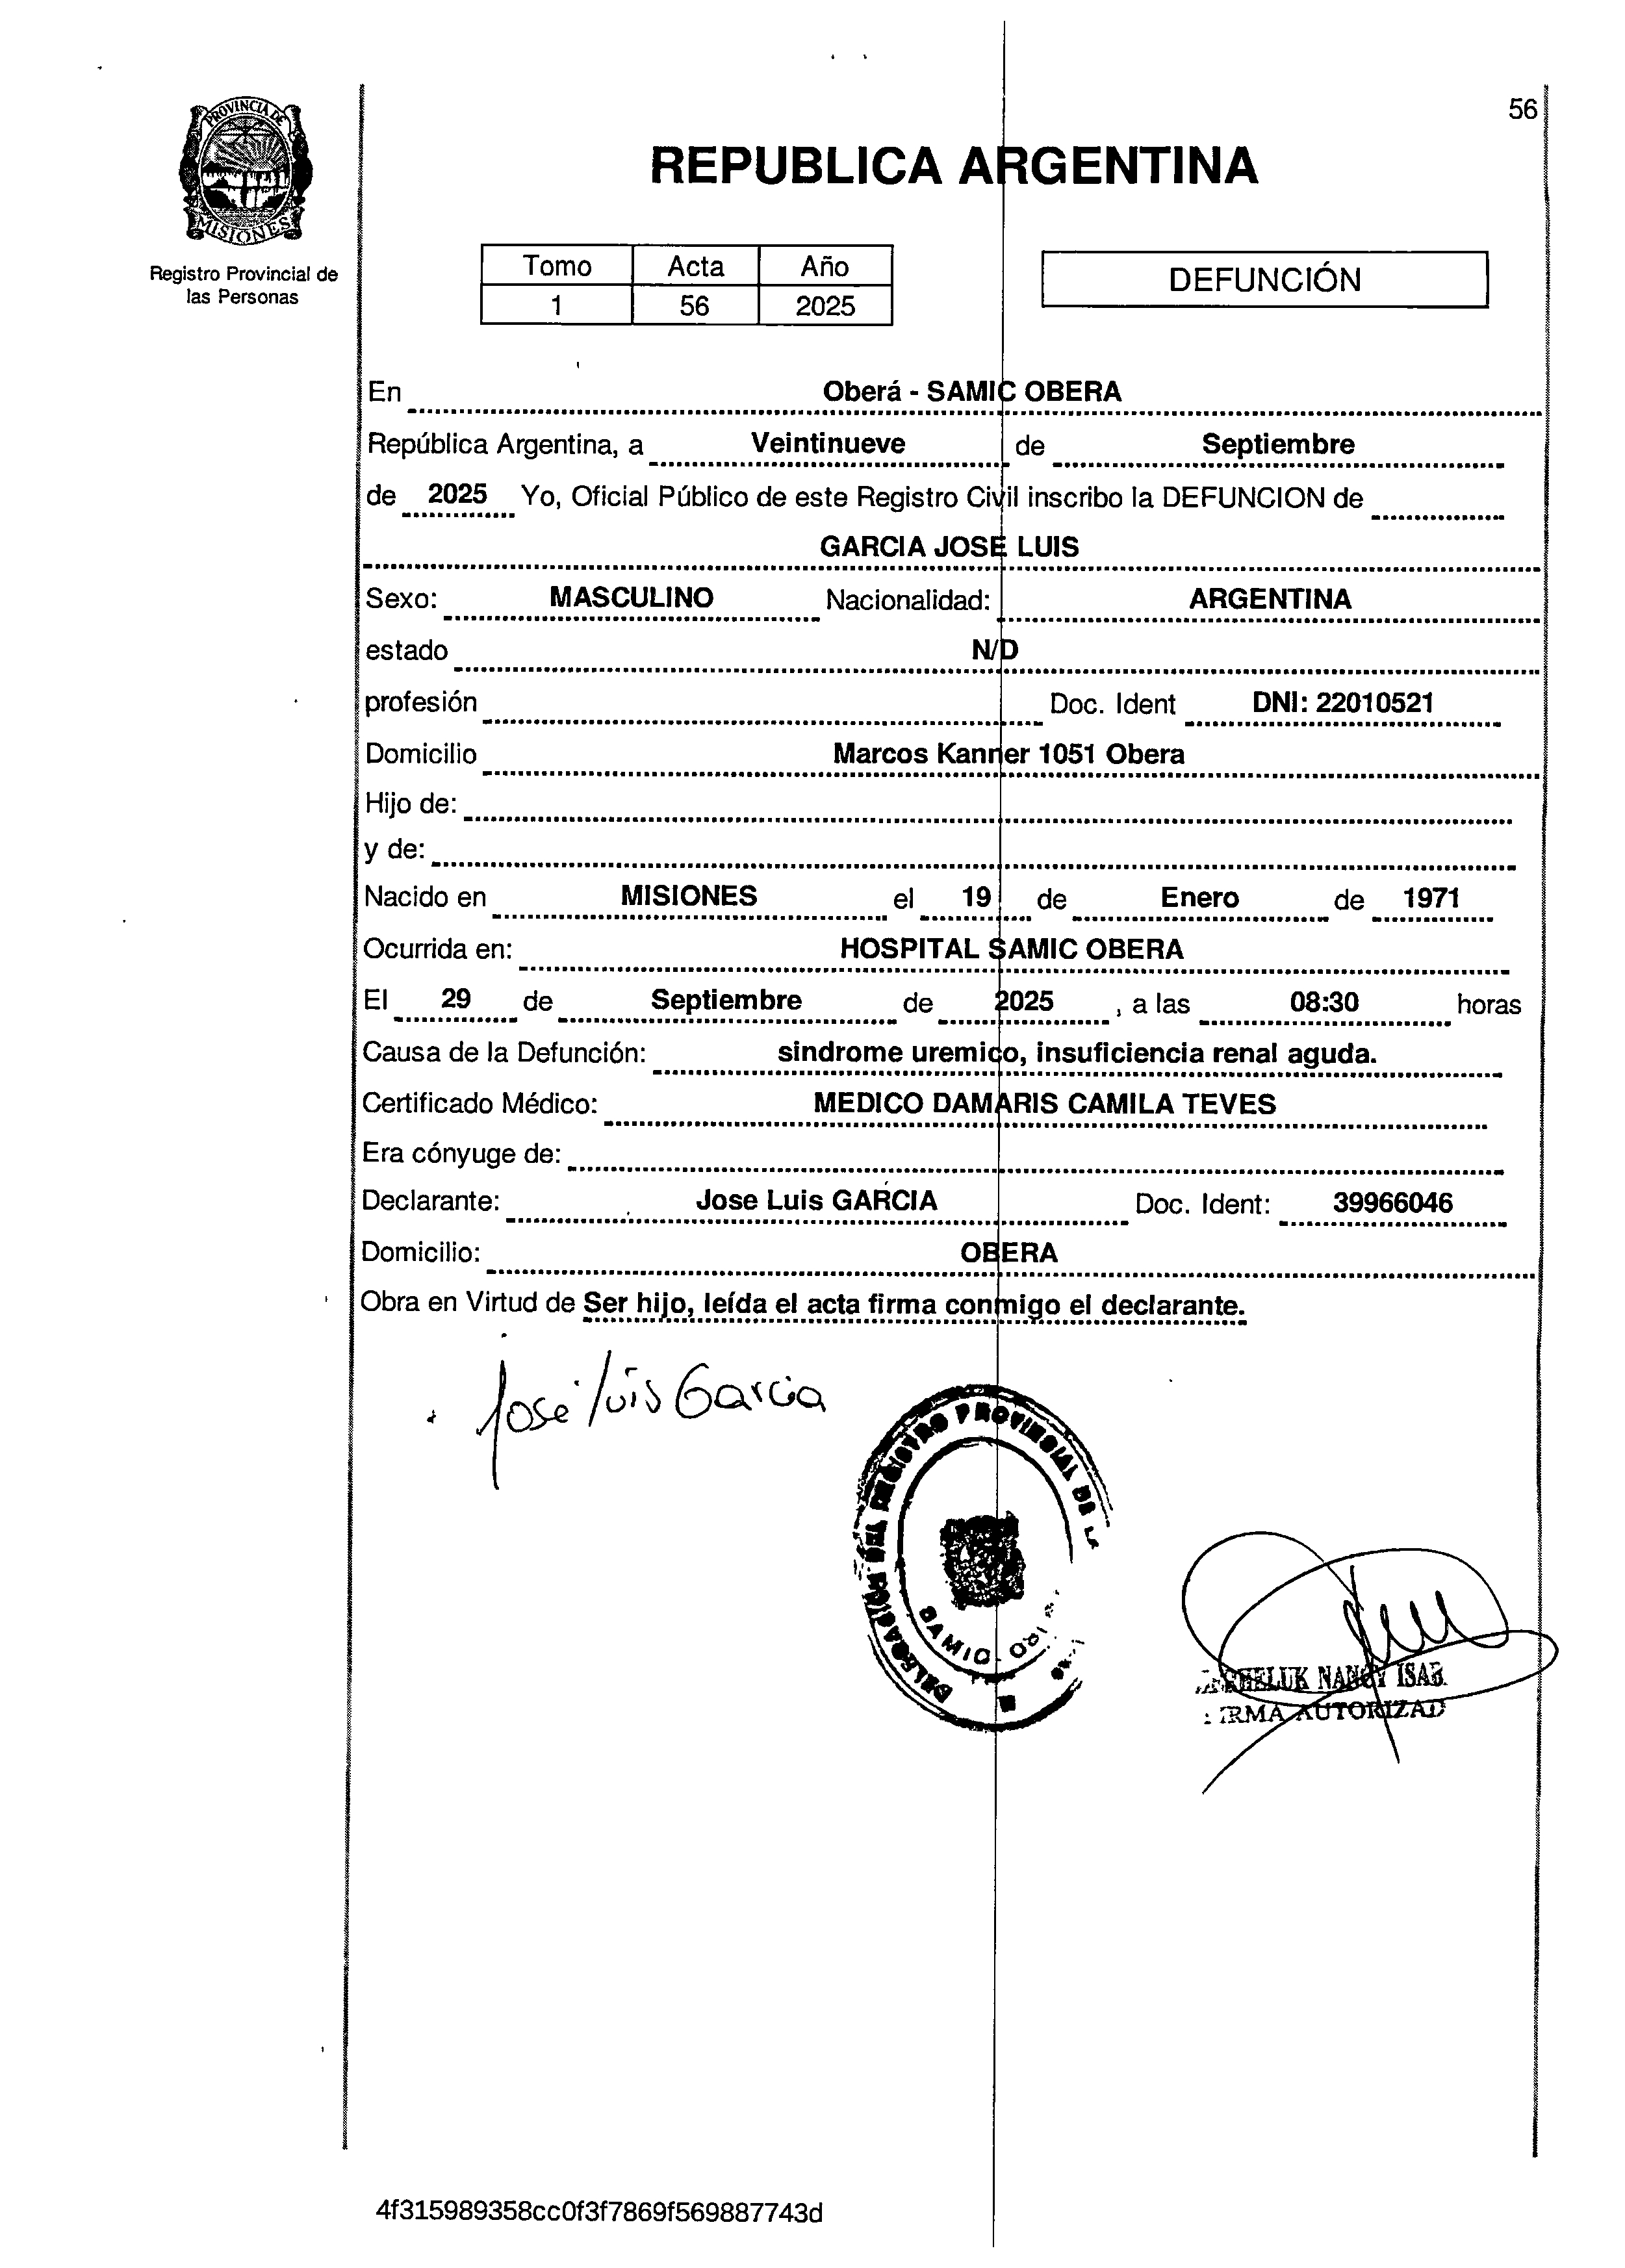 56
PROVINCIA DE
MISIONES
Registro Provincial de
las Personas
REPUBLICA ARGENTINA
Tomo Acta Año
1 56 2025
DEFUNCIÓN
En Oberá - SAMIC OBERA
República Argentina, a Veintinueve de Septiembre
de 2025 Yo, Oficial Público de este Registro Civil inscribo la DEFUNCION de
GARCIA JOSE LUIS
Sexo: MASCULINO Nacionalidad: ARGENTINA
estado N/D
profesión Doc. Ident DNI: 22010521
Domicilio Marcos Kanner 1051 Obera
Hijo de:
y de:
Nacido en MISIONES el 19 de Enero de 1971
Ocurrida en: HOSPITAL SAMIC OBERA
El 29 de Septiembre de 2025 , a las 08:30 horas
Causa de la Defunción: sindrome uremico, insuficiencia renal aguda.
Certificado Médico: MEDICO DAMARIS CAMILA TEVES
Era cónyuge de:
Declarante: Jose Luis GARCIA Doc. Ident: 39966046
Domicilio: OBERA
Obra en Virtud de Ser hijo, leída el acta firma conmigo el declarante.
José Luis Garcia
DELEGACIÓN DEL REGISTRO PROVINCIAL DE
SAMIC
NANCY ISAB.
AUTORIZAD
4f315989358cc0f3f7869f569887743d